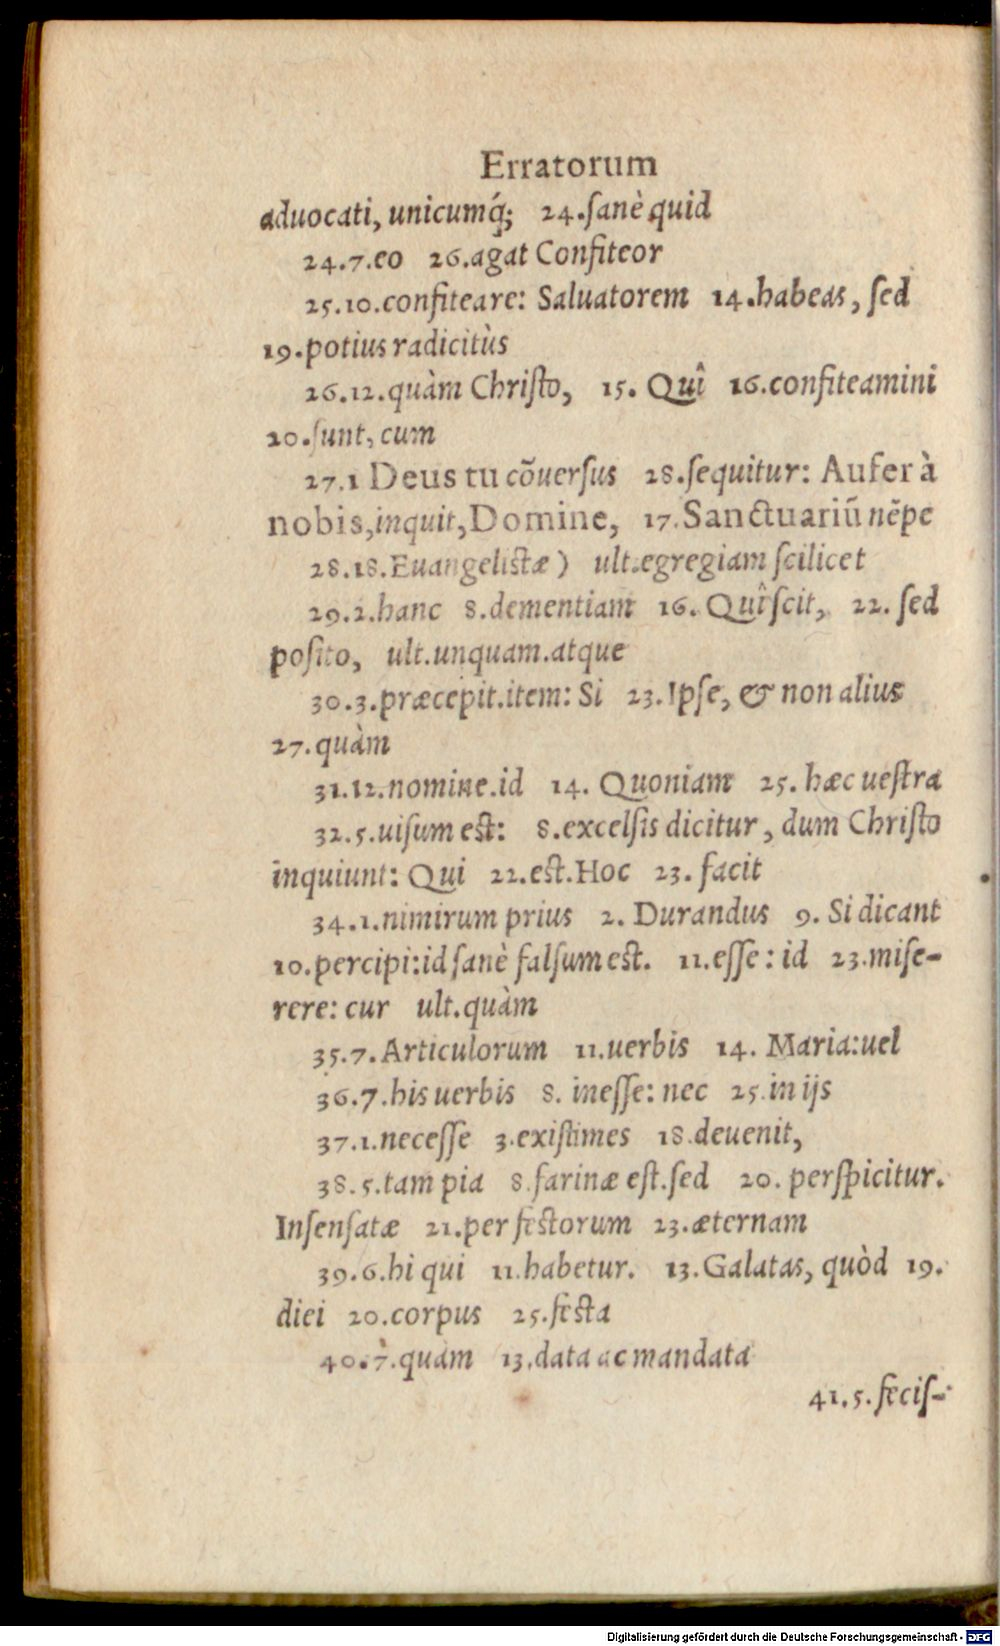 Erratorum
aduocati, unicumq́; 24.ſanè quid
24.7.eo 26.agat Confiteor
25.10.confiteare: Saluatorem 14.habeas, ſed
19.potius radicitùs
26.12.quàm Chriſto, 15. Quî 16.confiteamini
20.ſunt, cum
27.1 Deus tu cõuerſus 28.ſequitur: Aufer à
nobis,inquit,Domine, 17.Sanctuariũ nẽpe
28.18.Euangeliſtæ) ult.egregiam ſcilicet
29.2.hanc 8.dementiam 16. Quî ſcit, 22. ſed
poſito, ult.unquam.atque
30.3.præcepit.item: Si 23.Ipſe, & non alius
27.quàm
31.12.nomine.id 14. Quoniam 25. hæc ueſtra
32.5.uiſum eſt: 8.excelſis dicitur, dum Chriſto
inquiunt: Qui 22.eſt.Hoc 23. facit
34.1.nimirum prius 2. Durandus 9. Si dicant
10.percipi:id ſanè falſum eſt. 11.eſſe: id 23.miſe-
rere: cur ult.quàm
35.7.Articulorum 11.uerbis 14. Maria:uel
36.7.his uerbis 8. ineſſe: nec 25.in ijs
37.1.neceſſe 3.exiſtimes 18.deuenit,
38.5.tam pia 8.farinæ eſt.ſed 20. perſpicitur.
Inſenſatæ 21.per feſtorum 23.æternam
39.6.hi qui 11.habetur. 13.Galatas, quòd 19.
diei 20.corpus 25.feſta
40.7.quàm 13.data ac mandata
41.5.feciſ-
Digitalisierung gefördert durch die Deutsche Forschungsgemeinschaft - DFG